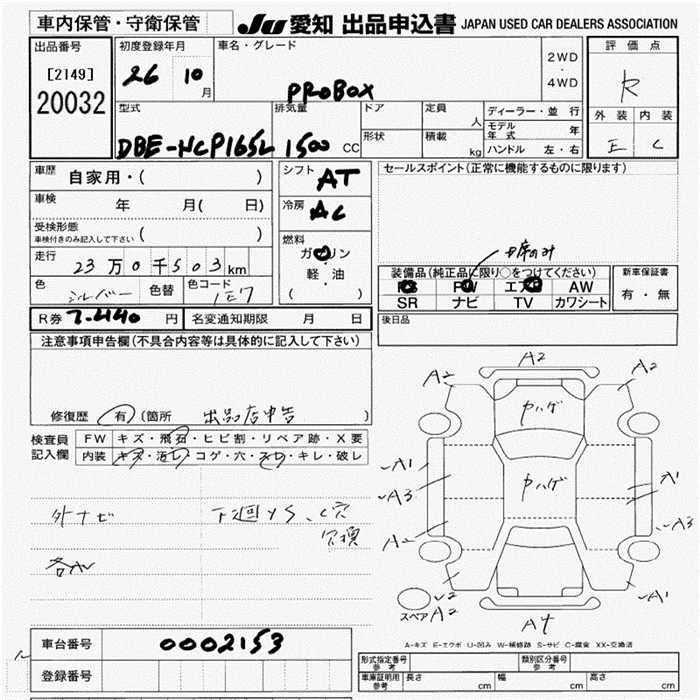 車内保管・守衛保管
JU 愛知 出品申込書 JAPAN USED CAR DEALERS ASSOCIATION
出品番号
[2149]
20032
初度登録年月
26 10月
車名・グレード
PROBOX
2WD
・
4WD
評価点
R
外装 内装
E C
型式
DBE-NCP165V
排気量
1500 CC
ドア
形状
定員 人
積載 kg
ディーラー・並行
モデル年式 年
ハンドル 左・右
車歴 自家用・( )
車検 年 月( 日)
受検形態
車検付きのみ記入して下さい ( )
走行 23万0千503km
色 シルバー 色替 色コード 1E7
シフト AT
冷房 AC
燃料
ガソリン
・
軽・油
( )
セールスポイント(正常に機能するものに限ります)
F席のみ
装備品(純正品に限り○をつけてください)
PS PW エアB AW
SR ナビ TV カワシート
新車保証書
有・無
R券 7.440 円 名変通知期限 月 日
後日品
注意事項申告欄(不具合内容等は具体的に記入して下さい)
修復歴 有 (箇所 出品店申告 )
検査員記入欄
FW キズ・飛石・ヒビ割・リペア跡・X要
内装 キズ・汚レ・コゲ・穴・スレ・キレ・破レ
外ナビ
下廻りS、C穴
欠損
各AU
A2
A2
A2
ヤハゲ
ヤハゲ
A1
A3
A2
A1
A3
A1
スペア A2
A4
A-キズ E-エクボ U-凹み W-補修跡 S-サビ C-腐食 XX-交換済
車台番号 0002153
登録番号
形式指定番号 参考
類別区分番号 参考
車庫証明用 参考 長さ cm 幅 cm 高さ cm